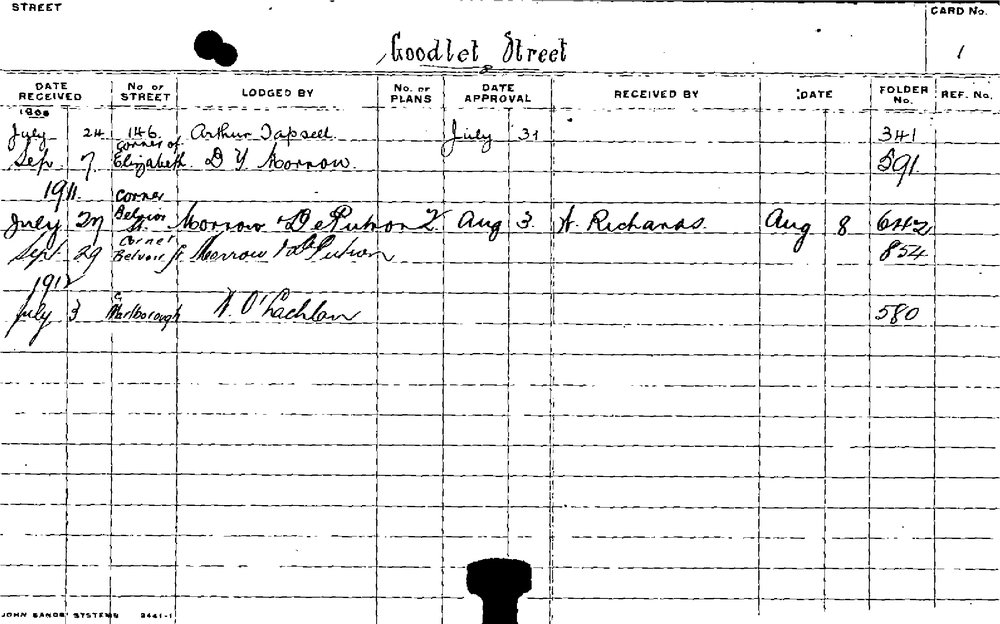 STREET
CARD No.
Goodlet Street
1
DATE RECEIVED No. or STREET LODGED BY No. or PLANS DATE APPROVAL RECEIVED BY DATE FOLDER No. REF. No.
July 24 146 Arthur Tapsell July 31 341
Sep. 7 corner of Elizabeth D Y Morrow 591
1911
July 27 corner Belvoir St. Morrow & De Putron 2 Aug 3 A. Richards Aug 8 642
Sept 29 corner Belvoir St Morrow & De Putron 854
1912
July 3 c Marlborough O'Lachlan 580
JOHN SANDS SYSTEMS 3441-1